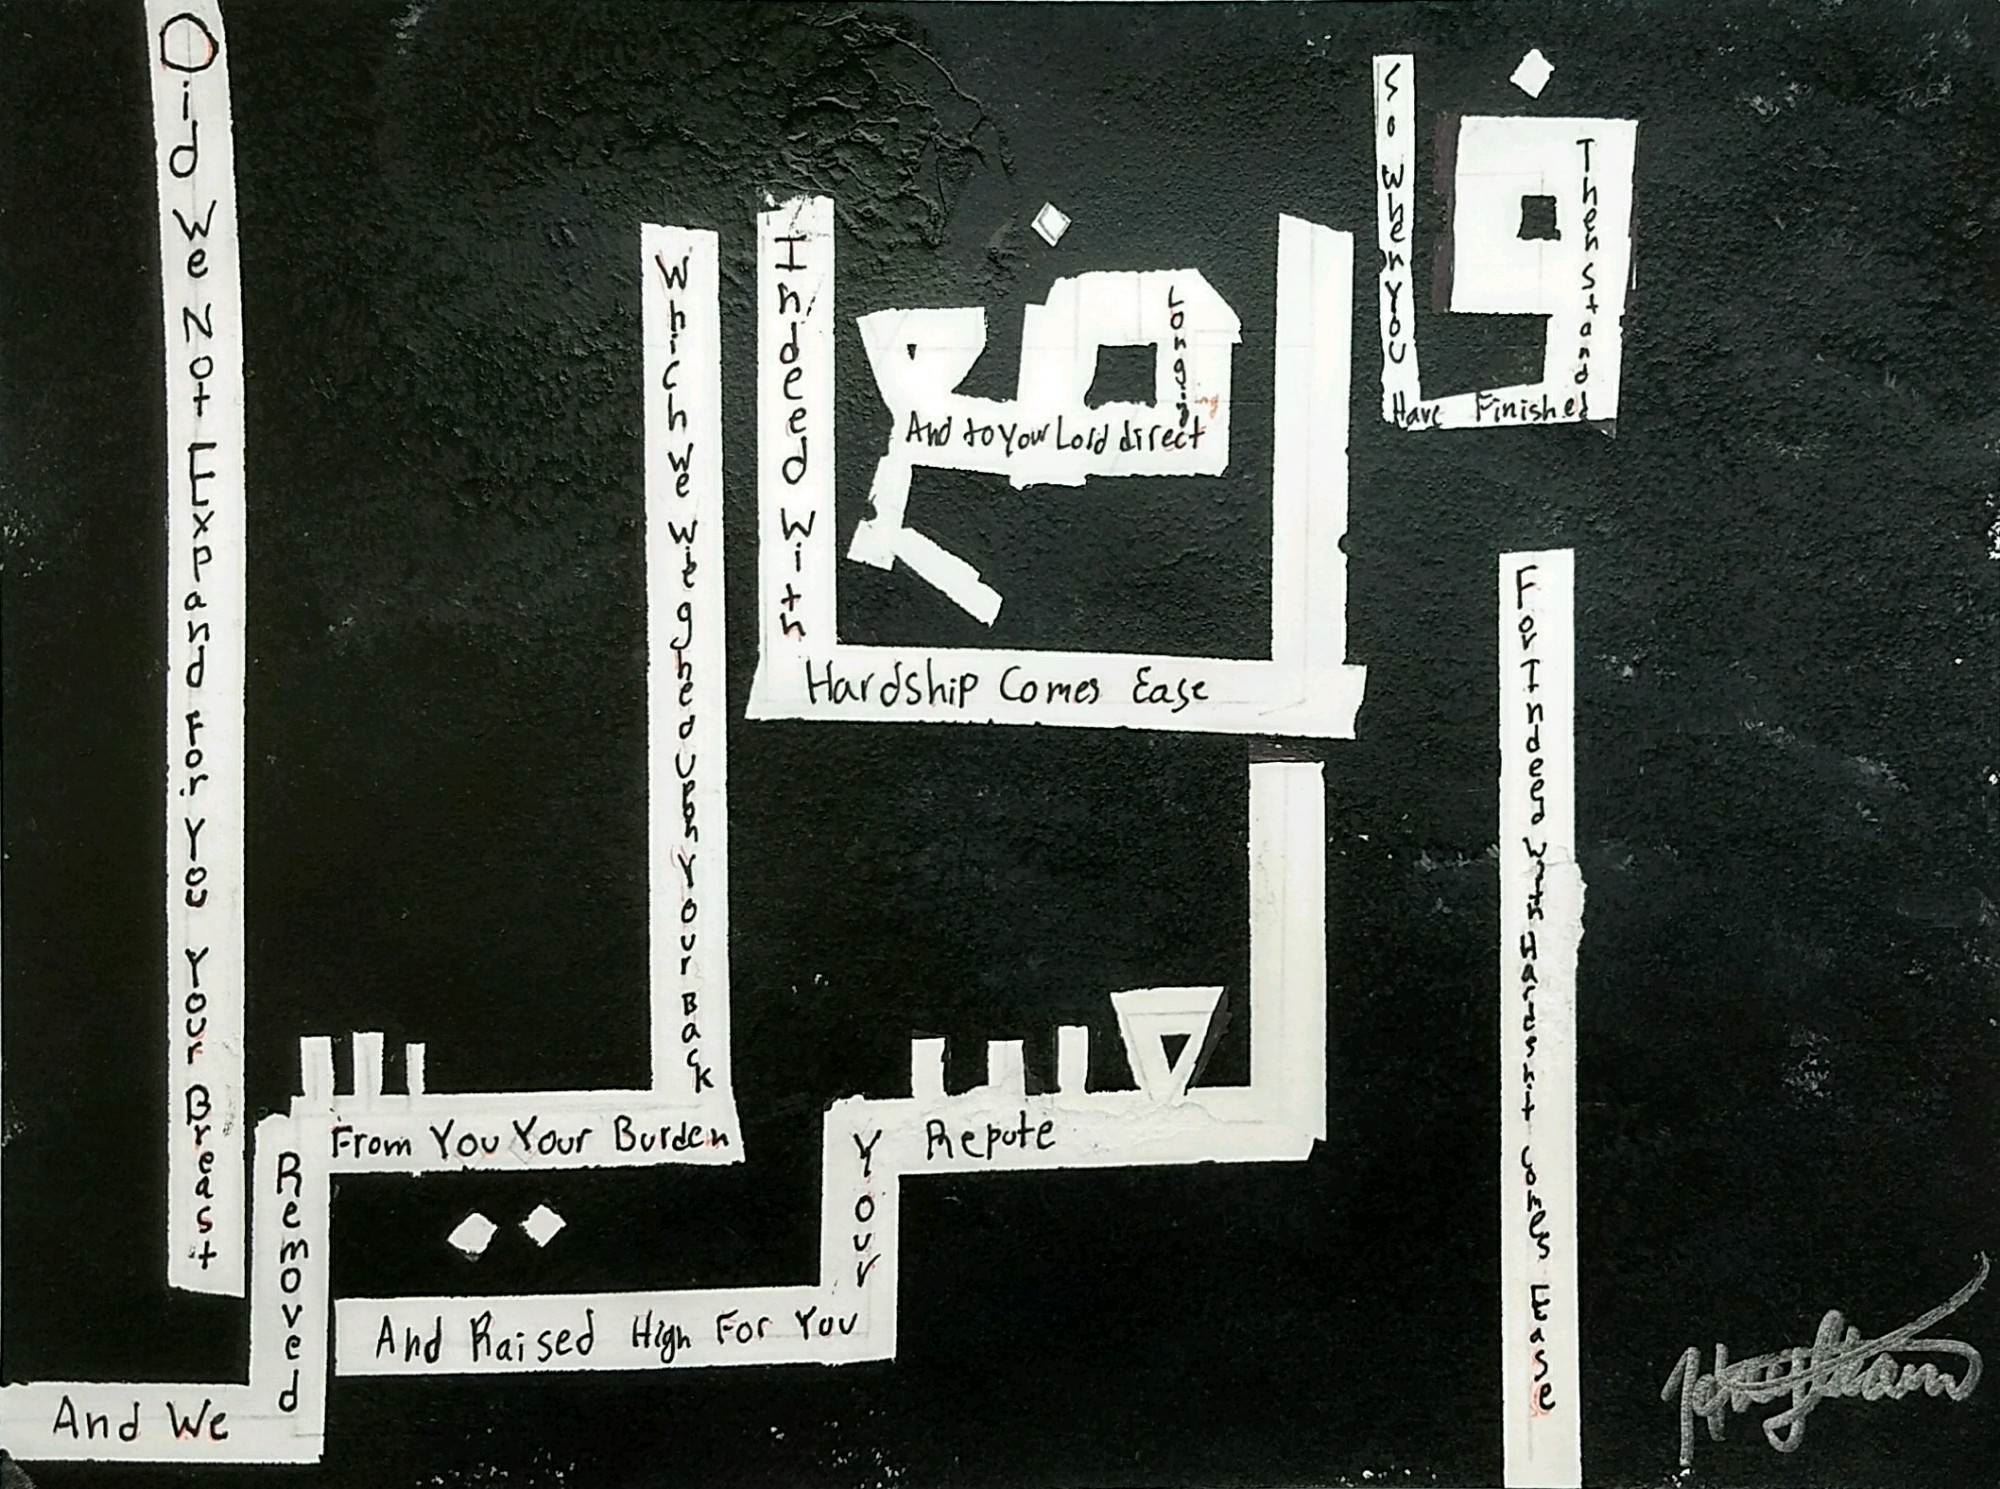 Did We Not Expand For You Your Breast
And We
Removed
From You Your Burden
Which We Wieghed Upon Your Back
And Raised High For You
Your
Repute
For Indeed With Hardship Comes Ease
Indeed With
Hardship Comes Ease
So When You
Have Finished
Then Stand
And to Your Lord direct
Longing